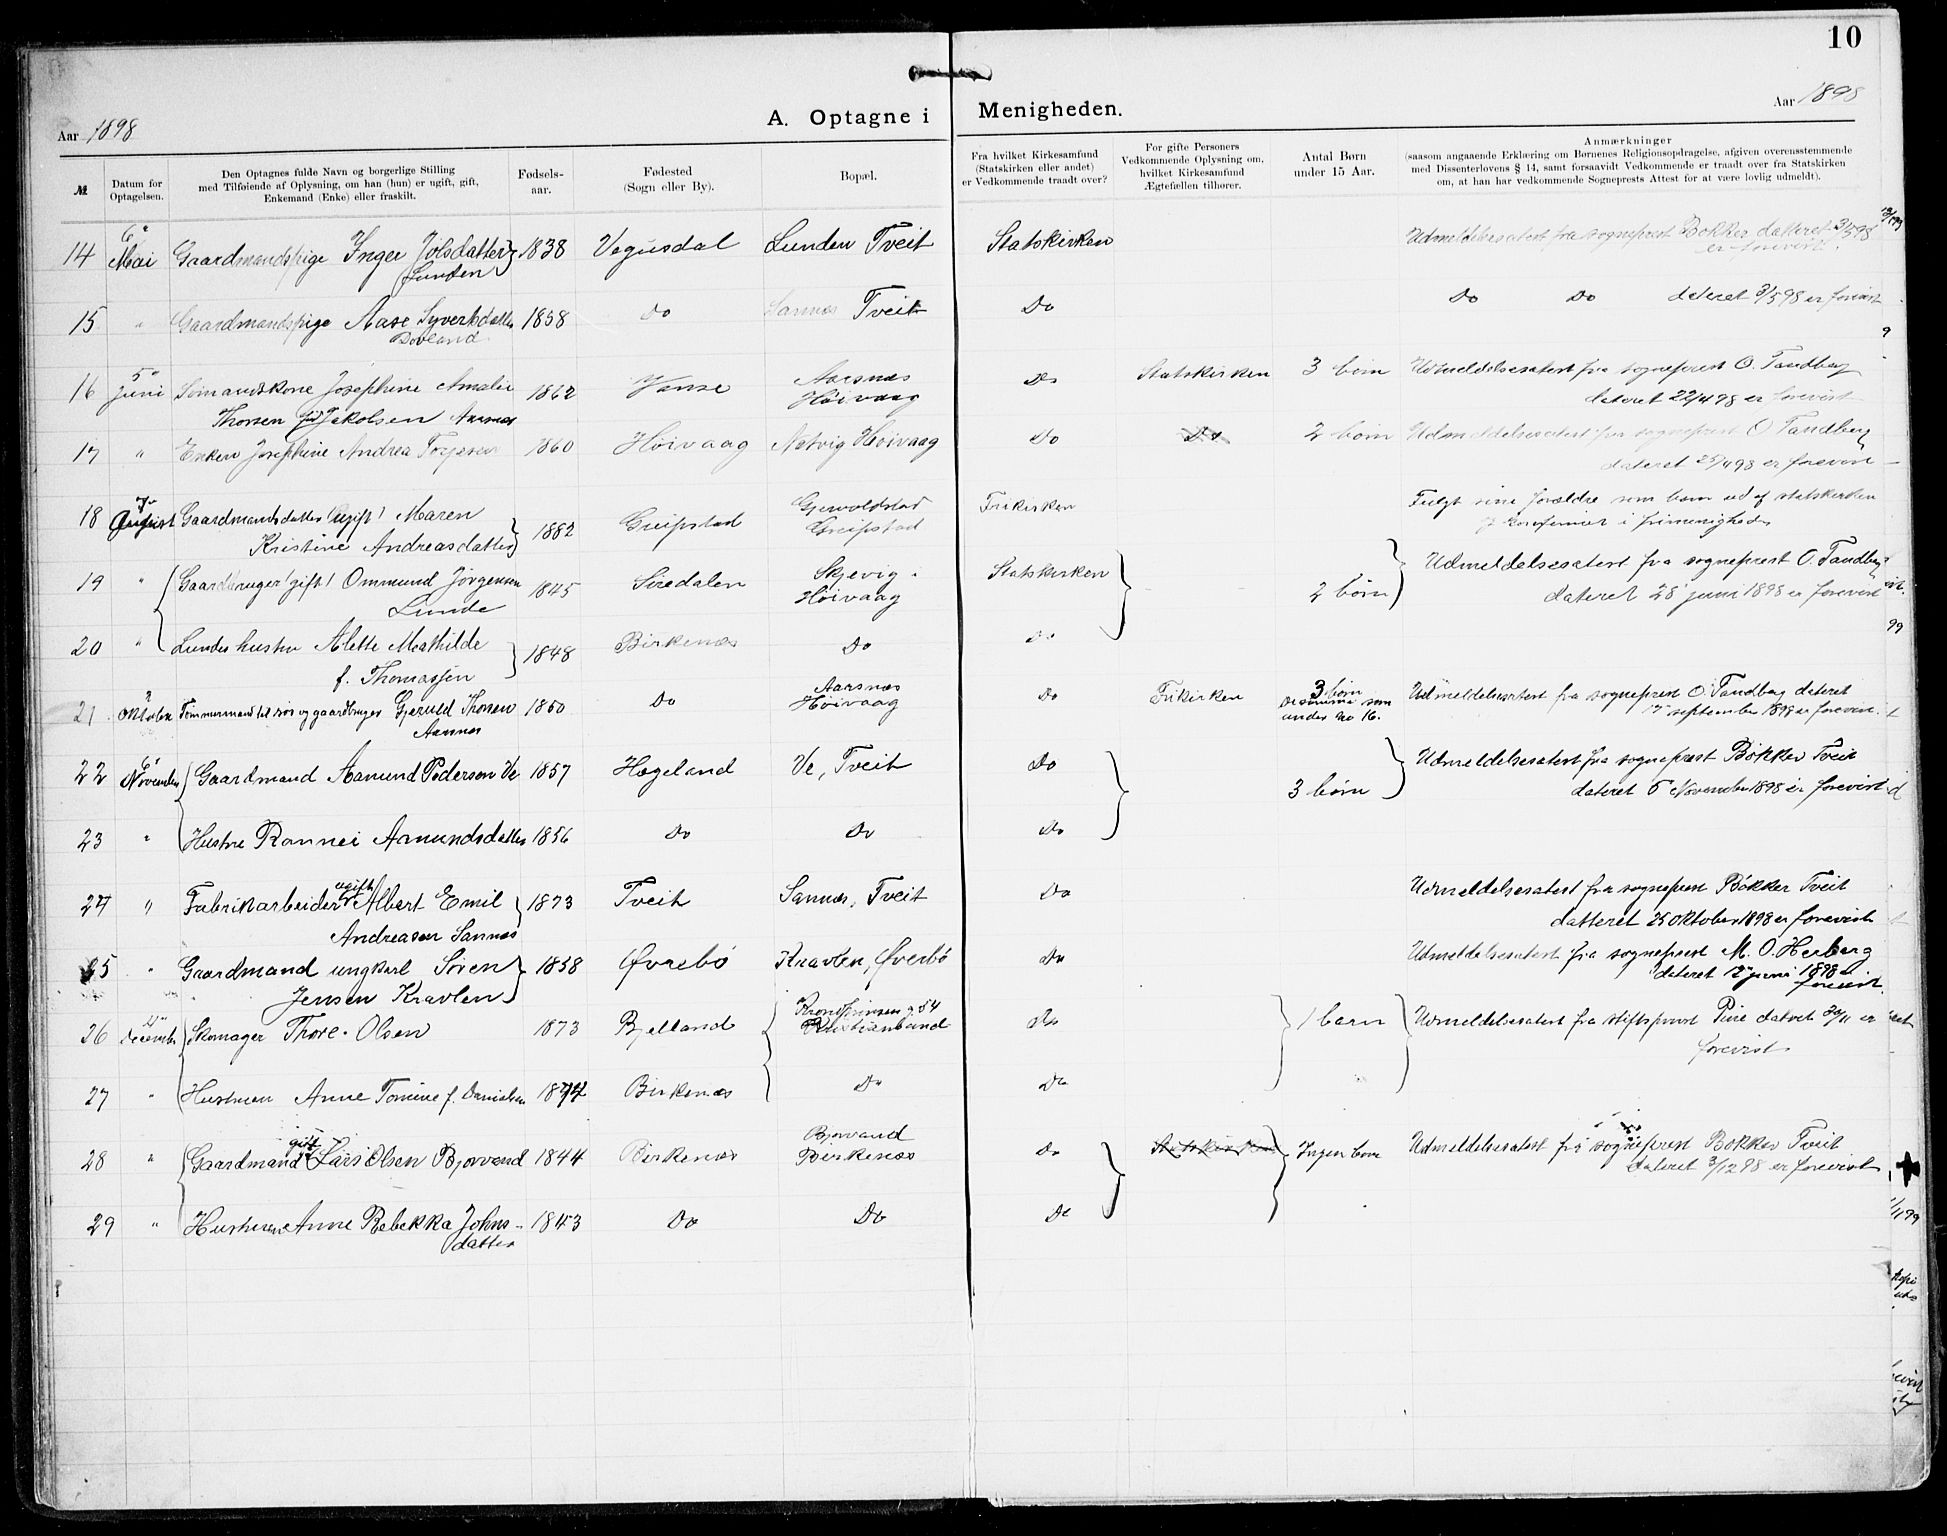 10
Aar 1898
A. Optagne i Menigheden.
Aar 1898
№
Datum for Optagelsen.
Den Optagnes fulde Navn og borgerlige Stilling
med Tilføiende af Oplysning, om han (hun) er ugift, gift,
Enkemand (Enke) eller fraskilt.
Fødsels-
aar.
Fødested
(Sogn eller By).
Bopæl.
Fra hvilket Kirkesamfund
(Statskirken eller andet)
er Vedkommende traadt over?
For gifte Personers
Vedkommende Oplysning om,
hvilket Kirkesamfund
Ægtefællen tilhører.
Antal Børn
under 15 Aar.
Anmærkninger
(saasom angaaende Erklæring om Børnenes Religionsopdragelse, afgiven overensstemmende
med Dissenterlovens § 14, samt forsaavidt Vedkommende er traadt over fra Statskirken
om, at han har vedkommende Sogneprests Attest for at være lovlig udmeldt).
14 Mai Gaardmandspige Inger Jolsdatter 1838 Vegusdal Lunden Tveit Statskirken Udmeldelsesatest fra sogneprest Bøkker datteret 3/5 98
Lunden er forevist.
15 " Gaardmandspige Aase Syvertsdatter 1858 Do Sannæs Tveit Do Do Do dateret 3/5 98 er forevist
Dovland
16 5 Juni Sømandskone Josephine Amalie 1862 Vanse Aarsnæs Høivaag Do Statskirken 3 børn Udmeldelsesatest fra sogneprest O. Tandberg
Thorsen Jakobsen Aarsnæs dateret 22/4 98 er forevist
17 " Enken Josephine Andrea Torjesen 1860 Høivaag Natvig Høivaag Do Do 2 børn Udmeldelsesatest fra sogneprest O Tandberg
dateret 25/4 98 er forevist
18 August Gaardmandsdatter (ugift) Maren 1882 Greipstad Greipstad Frikirken Fulgt sine forældre som barn ud af statskirken
Kristine Andreasdatter konfirmeret i frimenigheden
19 " Gaardbruger (gift) Ommund Jørgensen 1845 Siredalen Skjevig Høivaag Statskirken 2 børn Udmeldelsesatest fra sogneprest O. Tandberg
Lunde dateret 28 juni 1898 er forevist
20 " Lundes hustru Alette Mathilde 1848 Birkenæs Do Do
f. Thomassen
21 Oktober Tømmermand til søs og gaardbruger Gjeruld Thorsen 1860 Do Aarsnæs Høivaag Do Frikirken 3 børn Udmeldelsesatest fra sogneprest O. Tandberg dateret
Aarsnæs de samme som under no 16. september 1898 er forevist.
22 6 November Gaardmand Aamund Pederson Ve 1857 Hægeland Ve, Tveit Do 3 børn Udmeldelsesatest fra sogneprest Bøkker Tveit
dateret 5 November 1898 er forevist
23 " Hustru Rannei Aamundsdatter 1856 Do Do Do
24 " Fabrikarbeider ugift Albert Emil 1873 Tveit Sannæs, Tveit Do Udmeldelsesatest fra sogneprest Bøkker Tveit
Andreasen Sannæs datteret 25 Oktober 1898 er forevist
25 " Gaardmand ungkarl Søren 1858 Øvrebø Kravlen, Øvrebø Do Udmeldelsesatest fra sogneprest M. O. Herberg
Jensen Kravlen dateret 12 juni 1898 er
forevist.
26 December Skomager Thore Olsen 1873 Bjelland Kronprinsen g 54 Kristiansund Do 1 barn Udmeldelsesatest fra stiftsprovst dateret 30/11 er
forevist
27 " Hustruen Anne Tomine f. Danielsen 1874 Birkenæs Do Do
28 " Gaardmand gift Lars Olsen Bjorvand 1844 Birkenæs Bjorvand Birkenæs Do Statskirken Ingen børn Udmeldelsesatest fra sogneprest Bøkker Tveit
dateret 3/12 98 er forevist
29 " Hustruen Anne Rebekka Johns- 1843 Do Do Do
datter